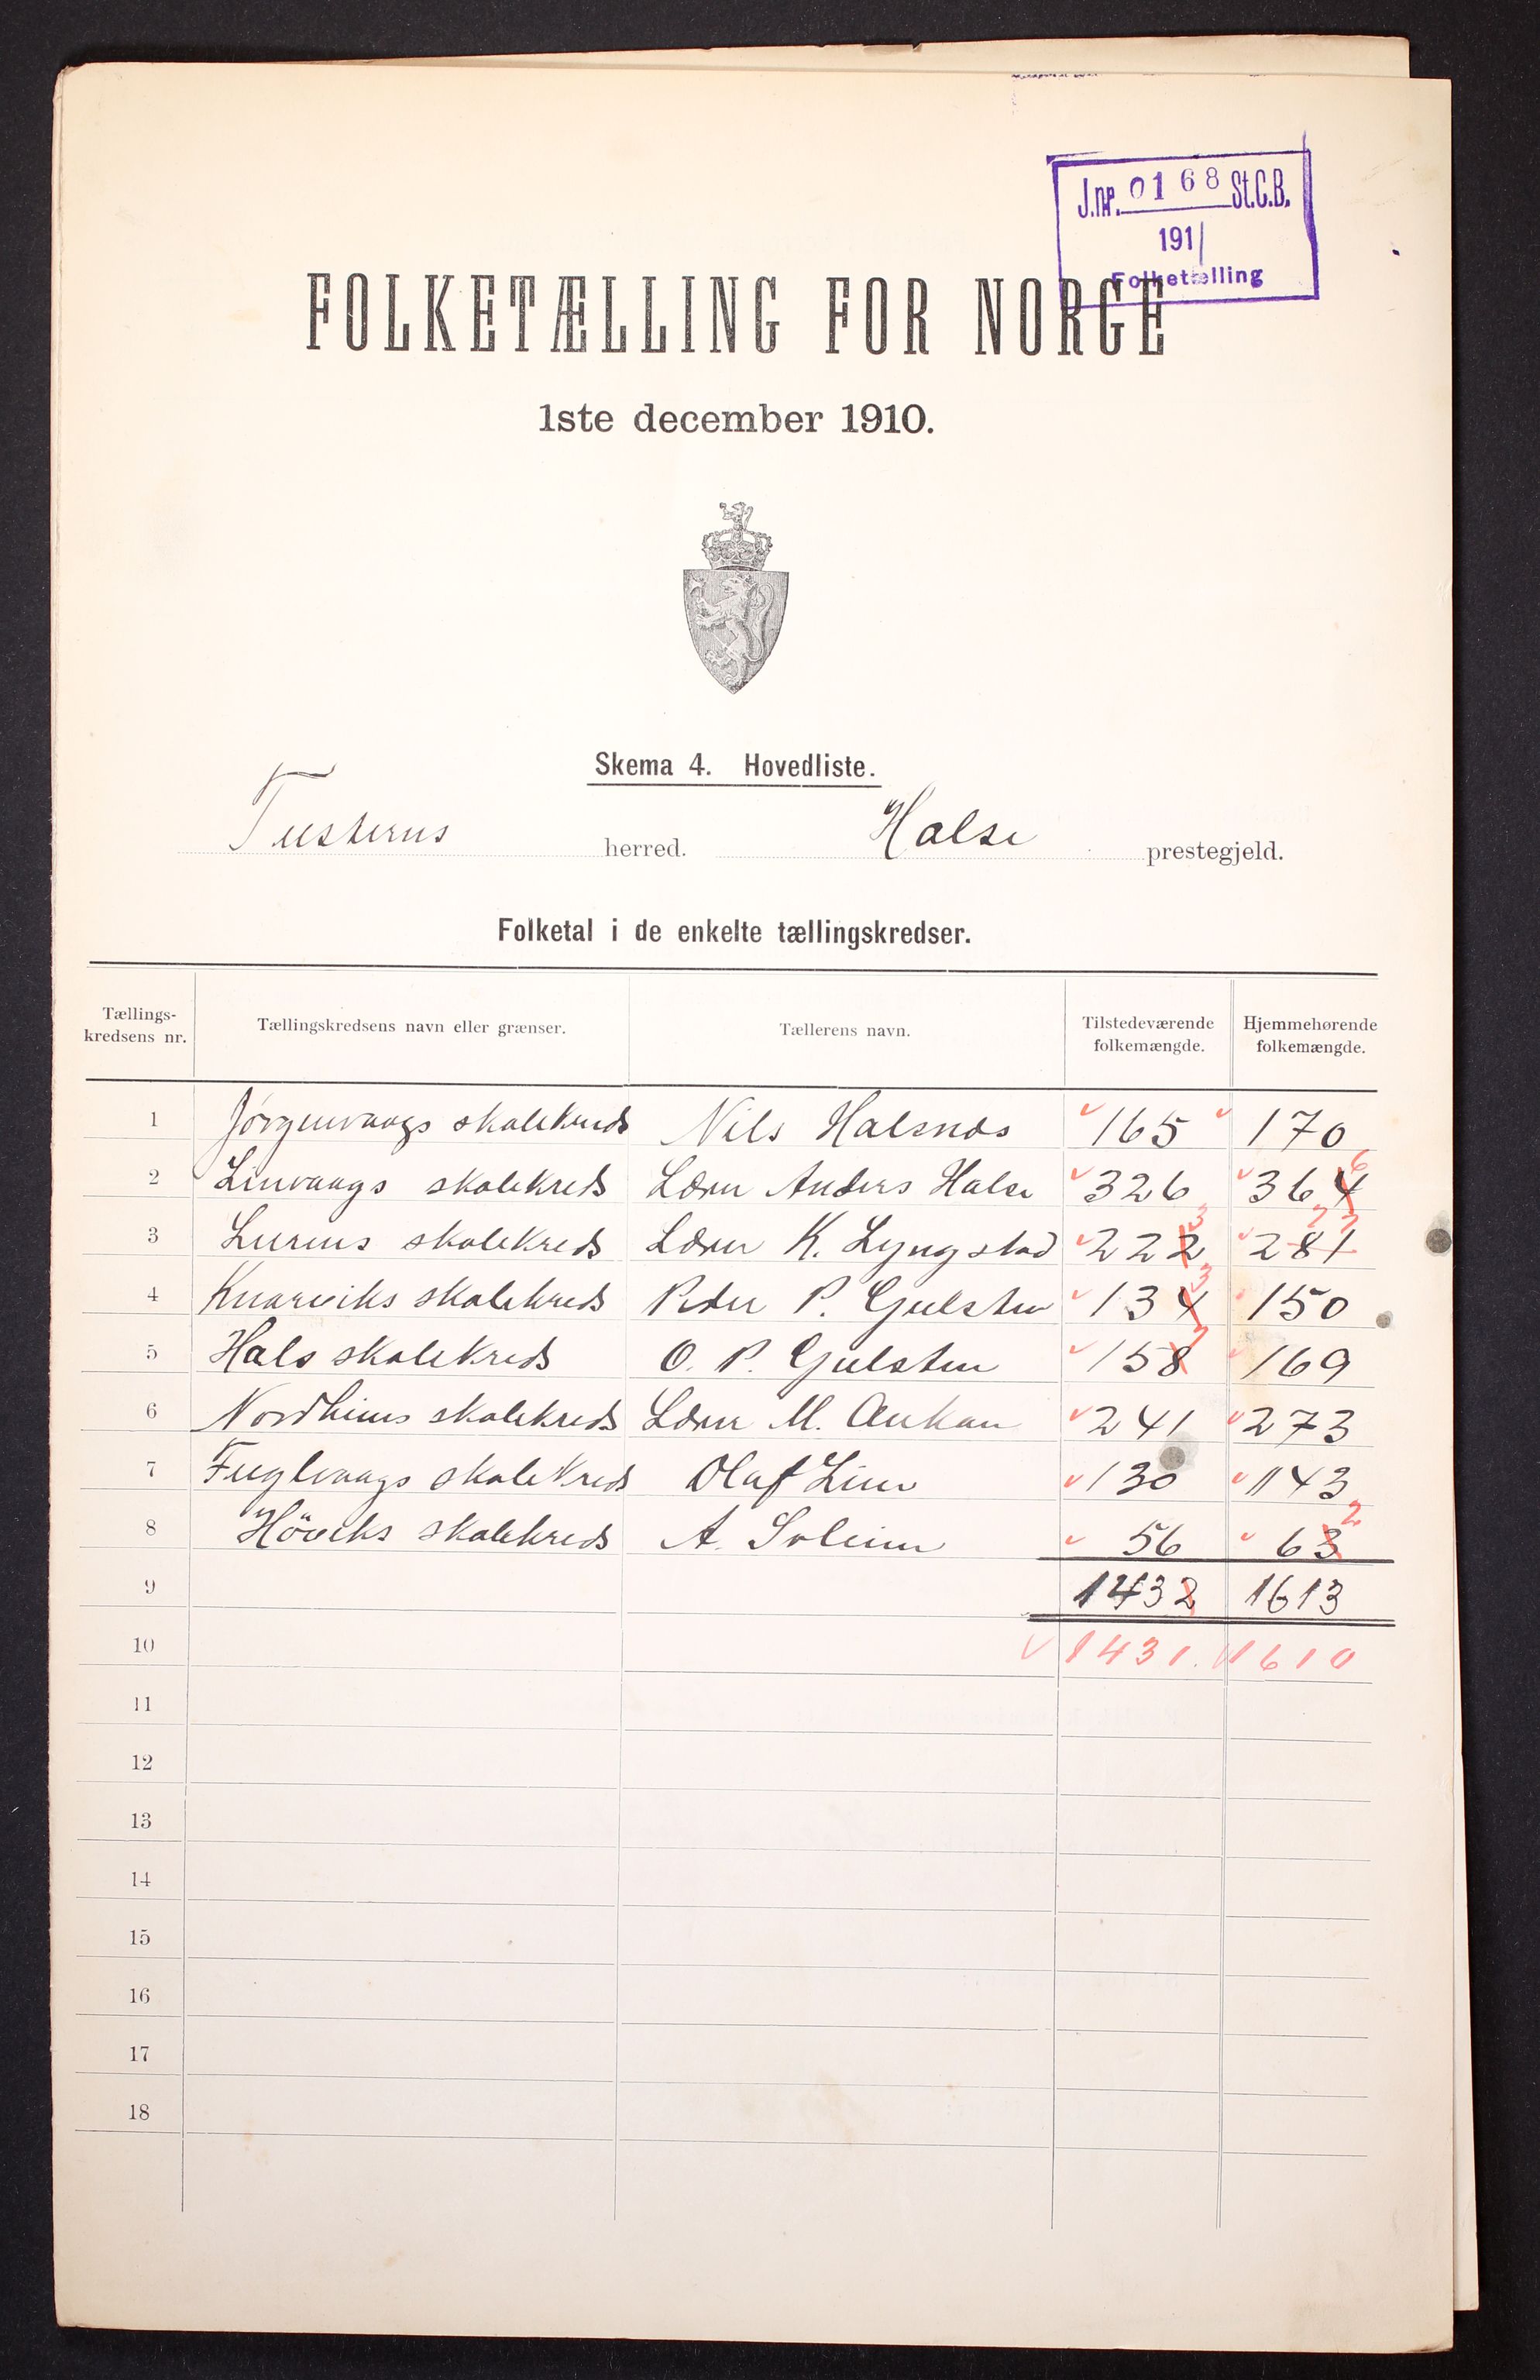 J.nr. 0168 St.C.B.
191
Folketælling
FOLKETÆLLING FOR NORGE
1ste december 1910.
Skema 4. Hovedliste.
Tusterns herred. Halse prestegjeld.
Folketal i de enkelte tællingskredser.
Tællings-
kredsens nr.
Tællingskredsens navn eller grænser.
Tællerens navn.
Tilstedeværende
folkemængde.
Hjemmehørende
folkemængde.
1 Jörgenvaags skolekreds Nils Halsnøs 165 170
2 Linvaags skolekreds Lærer Anders Halse 326 364 6
3 Lurens skolekreds Lærer K. Lyngstad 222 3 281 7 7
4 Knarviks skolekreds Peder P. Gulsten 134 3 150
5 Hals skolekreds O. P. Gulsten 158 7 169
6 Nordheims skolekreds Lærer M. Aukan 241 273
7 Fuglvaags skolekreds Olaf Lien 130 143
8 Höviks skolekreds A. Soleim 56 63 2
9 1432 1613
10 1431. 1610
11
12
13
14
15
16
17
18